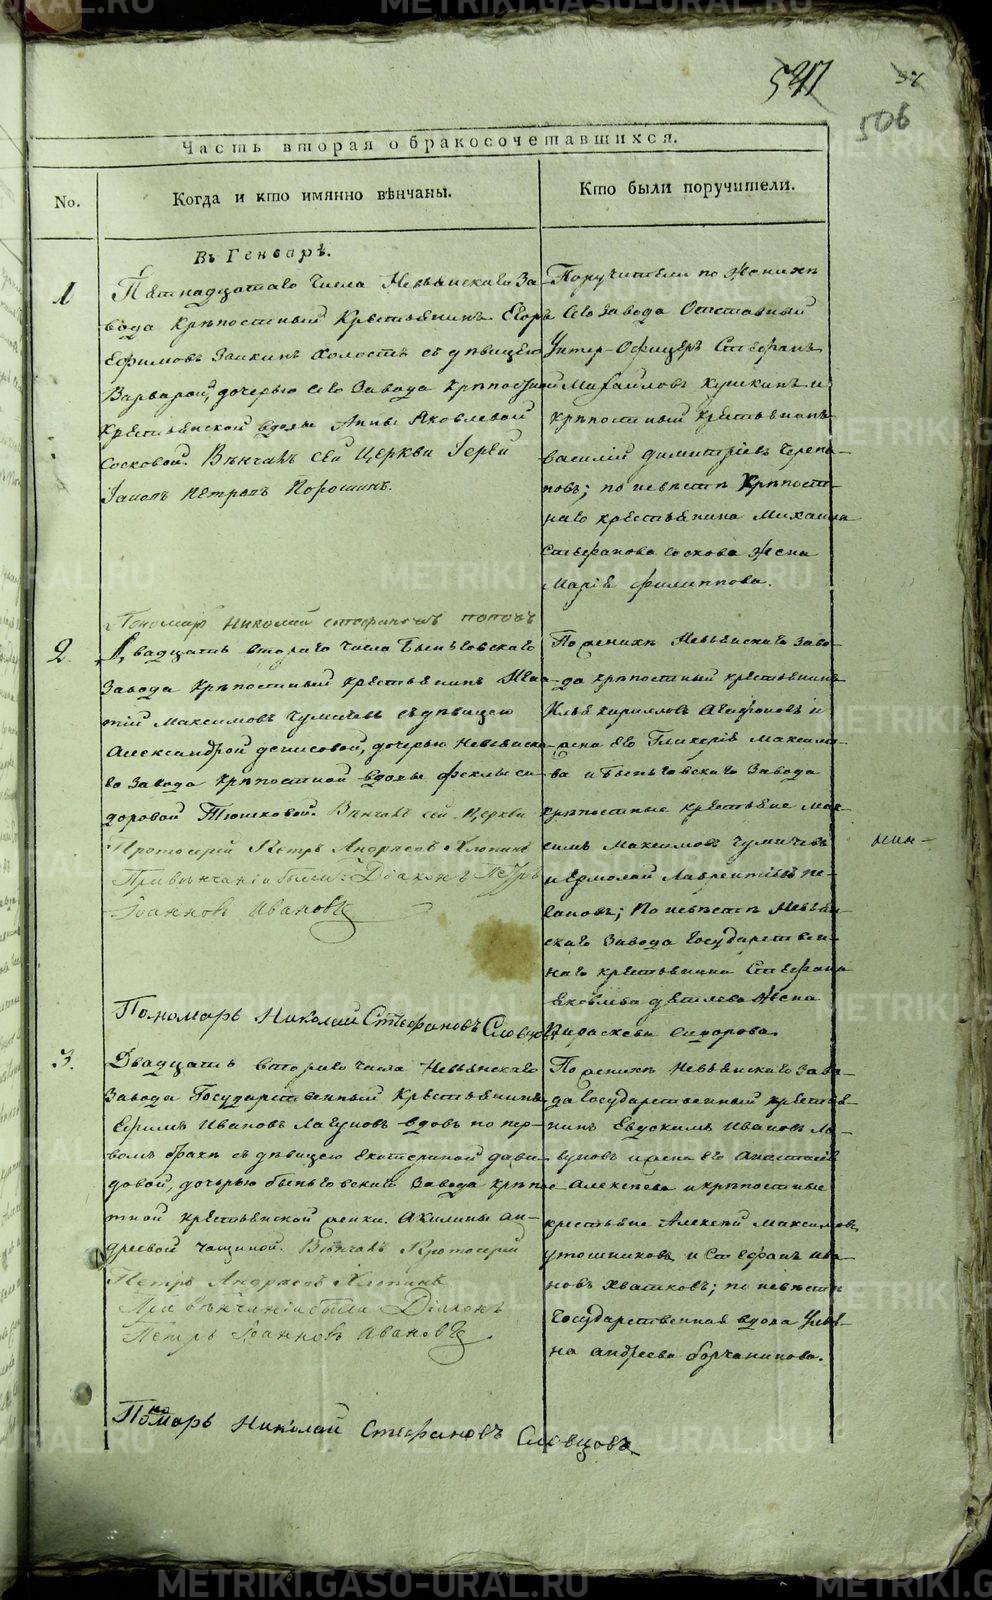 547
506
Часть вторая о бракосочетавшихся.
No.
Когда и кто имянно вѣнчаны.
Кто были поручители.
Въ Генварѣ.
1
Пятнадцатаго числа Невьянскаго За-
вода крѣпостный крестьянинъ Егоръ
Ефимовъ Заикинъ холостъ съ дѣвицею
Варварой, дочерью сего завода крѣпостной
крестьянской вдовы Анны Яковлевой
Сосковой. Вѣнчалъ сей церкви Іерей
Іаковъ Петровъ Порошинъ.
Пономарь Николай Стефановъ Поповъ
Поручители по женихѣ
сего завода Отставный
Унтер-Офицеръ Стефанъ
Михайловъ Кушкинъ и
крѣпостный крестьянинъ
василий димитріевъ Черепа-
новъ; по невѣстѣ крѣпост-
наго крестьянина Михаила
Стефанова Соскова жена
Марія филиппова.
2.
Двадцать втораго числа Быньговскаго
завода крѣпостный крестьянинъ
Максимовъ Чумичевъ съ дѣвицею
Александрой денисовой, дочерью Невьянска-
го завода крѣпостной вдовы феклы си-
доровой Тюшковой. Вѣнчалъ сей церкви
Протоіерей Петръ Андреевъ Хлопинъ
При вѣнчаніи были: Діаконъ Петръ
Іоанновъ Ивановъ
Пономарь Николай Стефановъ Словцовъ
По женихѣ Невьянскаго заво-
да крѣпостный крестьянинъ
Илья кирилловъ Агафоновъ и
жена его Гликерія Максимо-
ва и Быньговскаго завода
крѣпостные крестьяне Мак-
симъ Максимовъ Чумичевъ
и Ермолай Лаврентьевъ
по невѣстѣ Невьян-
скаго завода государствен-
наго крестьянина Стефана
Яковлева жена
Параскева Сидорова.
3.
Двадцать втораго числа Невьянскаго
завода Государственный крестьянинъ
Ефимъ Ивановъ Лагуновъ вдовъ по пер-
вомъ бракѣ съ дѣвицею Екатериной дави-
довой, дочерью быньговскаго завода крѣпо-
стной крестьянской женки Акилины ан-
дреевой Чащиной. Вѣнчалъ Протоіерей
Петръ Андреевъ Хлопинъ
При вѣнчаніи были Діаконъ
Петръ Іоанновъ Ивановъ
Пономарь Николай Стефановъ Словцовъ
По женихѣ Невьянскаго заво-
да государственный крестья-
нинъ Евдокимъ Ивановъ Ла-
гуновъ и жена его Анастасія
Алексеева и крѣпостные
крестьяне Алексей Максимовъ
и Стефанъ ива-
новъ Хватковъ; по невѣстѣ
государственная вдова Улья-
на андреева борчанинова.